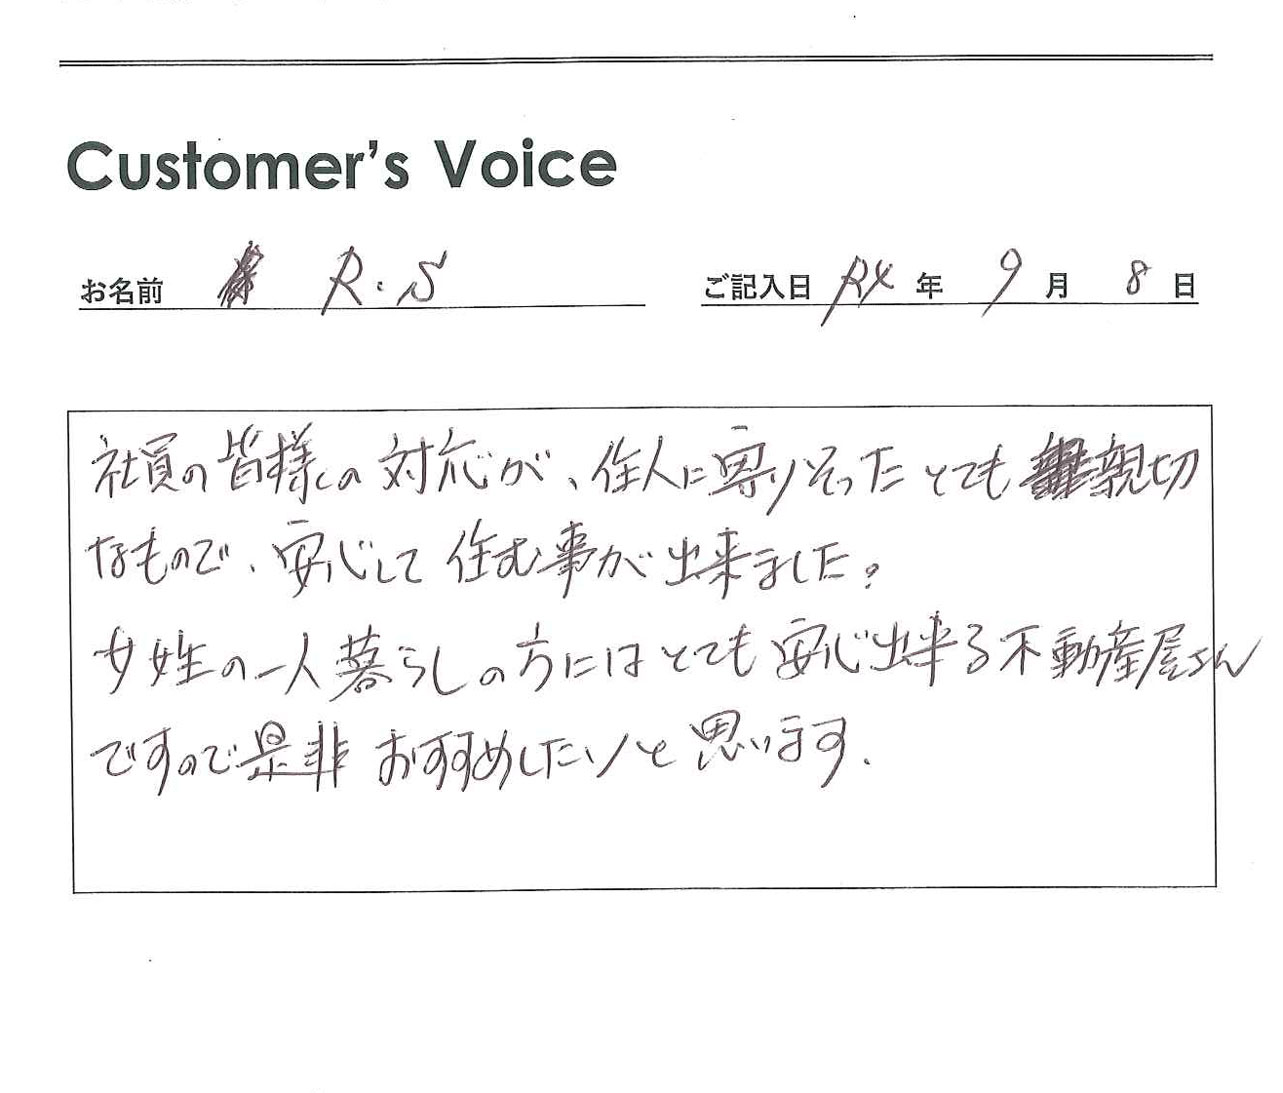 Customer's Voice
お名前 R.S ご記入日 R4年 9月 8日
社員の皆様の対応が、住人に寄りそったとても親切
なもので、安心して住む事が出来ました。
女性の一人暮らしの方にはとても安心出来る不動産屋さん
ですので是非おすすめしたいと思います.